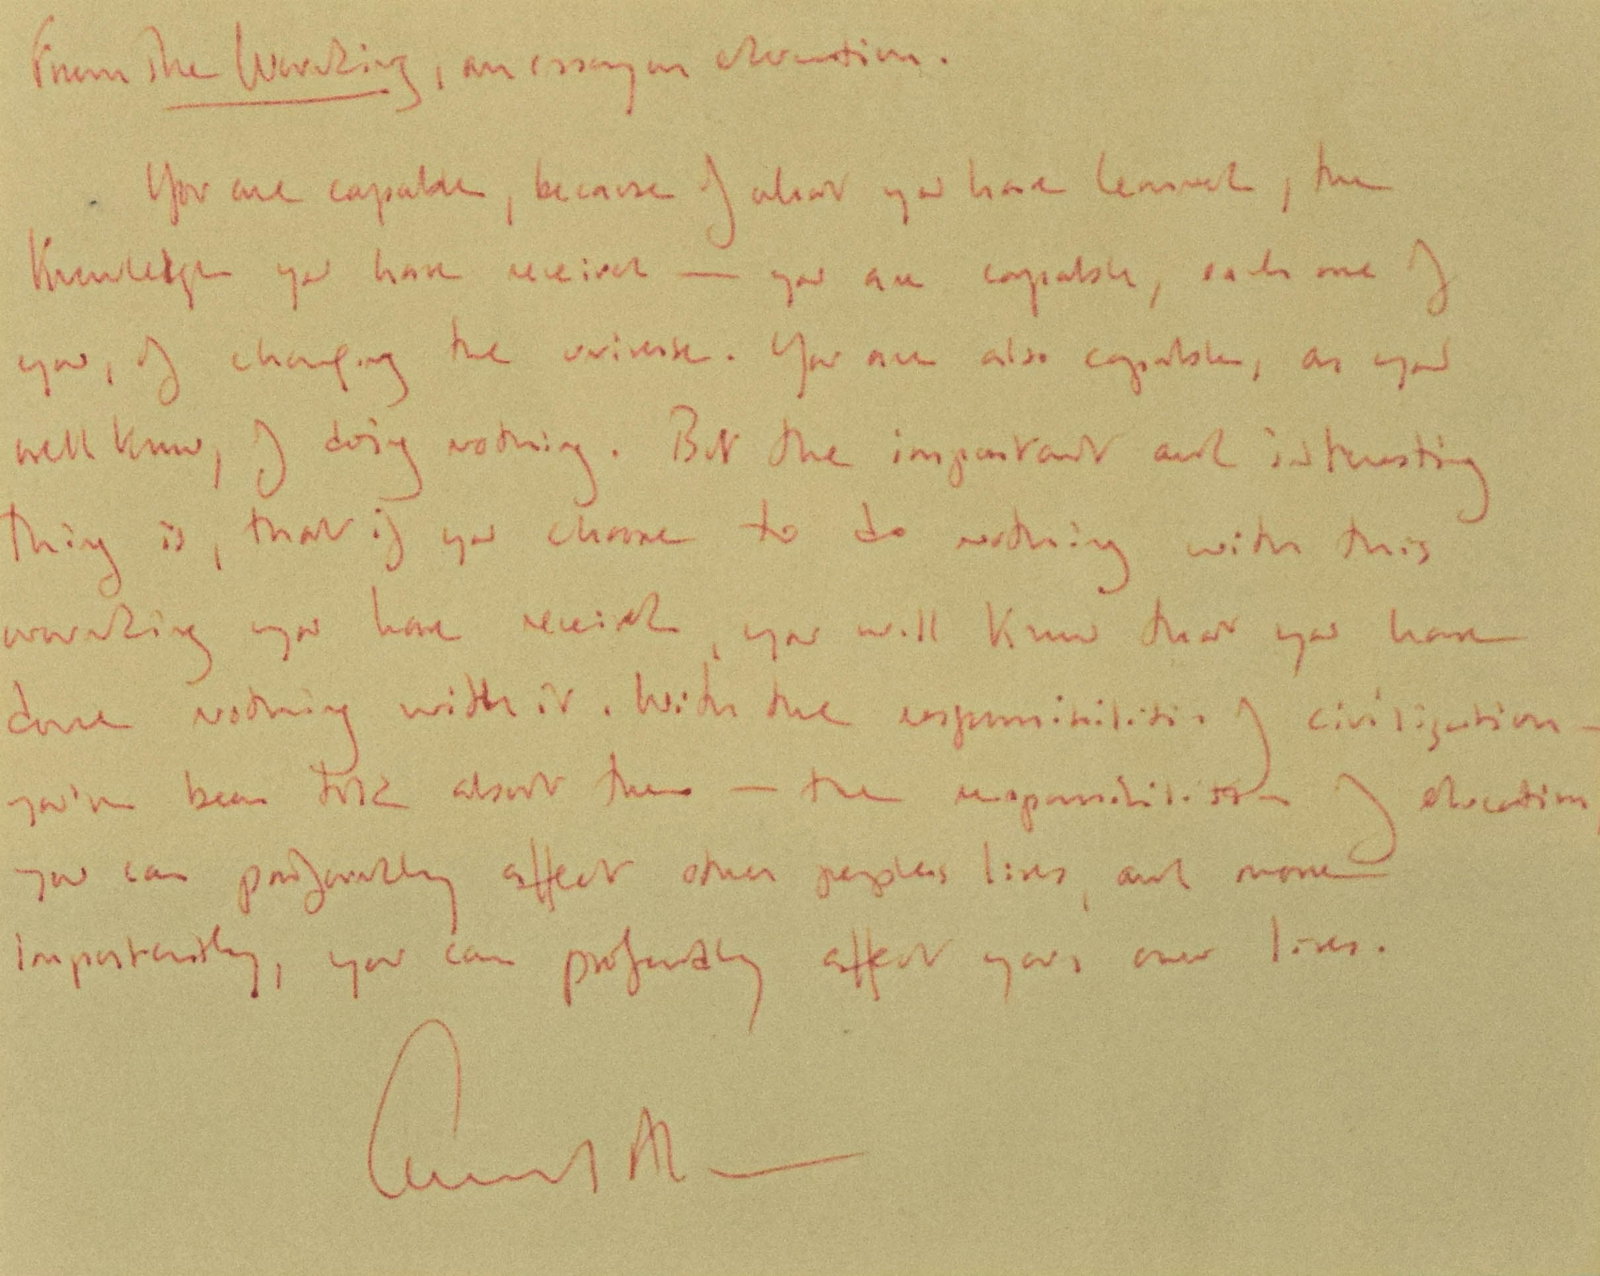 From The Wavering, an essay on education.
You are capable, because of what you have learned, the
Knowledge you have received — you are capable, each one of
you, of changing the universe. You are also capable, as you
well know, of doing nothing. But the important and interesting
thing is, that if you choose to do nothing with this
you have received, you will know that you have
done nothing with it. With the responsibilities of civilization —
you've been told about them — the responsibilities of education,
you can profoundly affect other peoples lives, and more
importantly, you can profoundly affect your own lives.